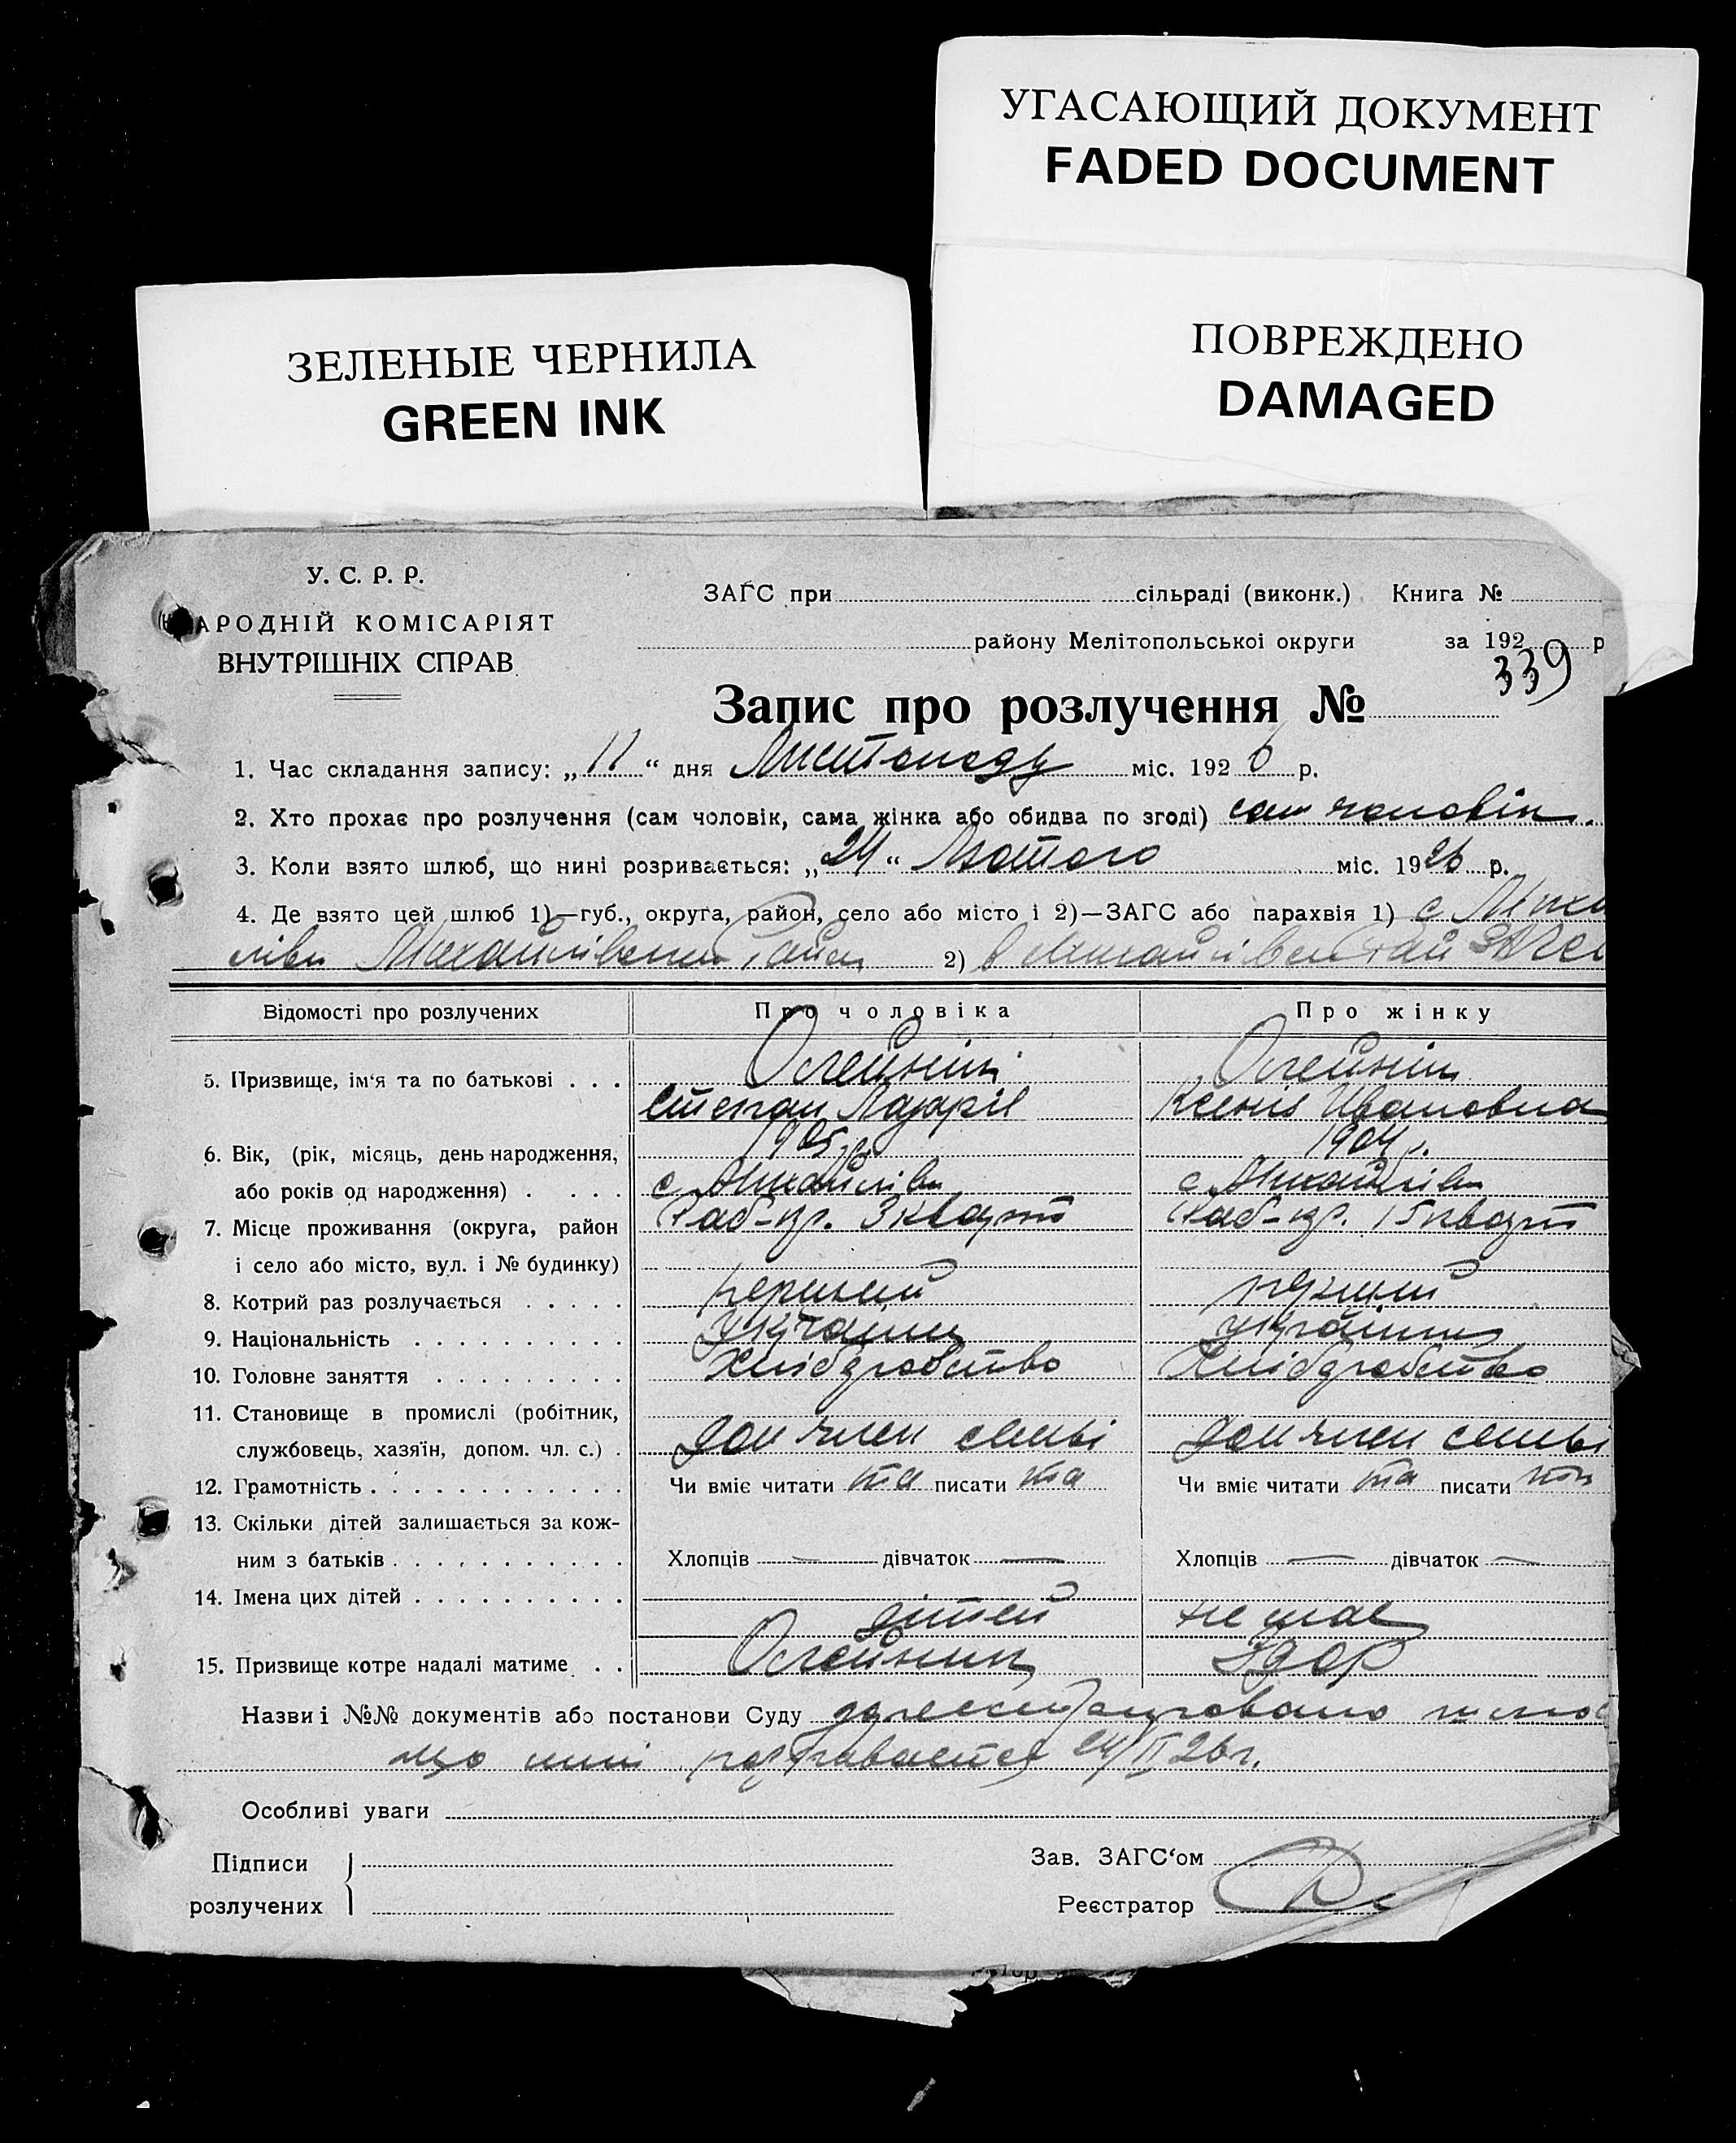 УГАСАЮЩИЙ ДОКУМЕНТ
FADED DOCUMENT
ЗЕЛЕНЫЕ ЧЕРНИЛА
GREEN INK
ПОВРЕЖДЕНО
DAMAGED
У. С. Р. Р.
НАРОДНІЙ КОМІСАРІЯТ
ВНУТРІШНІХ СПРАВ
ЗАГС при сільраді (виконк.) Книга №
району Мелітопольської округи за 192 р
Запис про розлучення № 339
1. Час складання запису: „11“ дня Листопаду міс. 1926 р.
2. Хто прохає про розлучення (сам чоловік, сама жінка або обидва по згоді) сам чоловік.
3. Коли взято шлюб, що нині розривається: „24“ Лютого міс. 1926 р.
4. Де взято цей шлюб 1)—губ., округа, район, село або місто і 2)—ЗАГС або парахвія 1) с Миха
лівк Михайлівськ Район 2) в Михайлівській ЗАГСі
Відомості про розлучених Про чоловіка Про жінку
5. Призвище, ім‘я та по батькові . . . Олейник Олейник
Степан Лазарів Ксенія Ивановна
6. Вік, (рік, місяць, день народження, 1905 р. 1904 р.
або років од народження) . . . . с Михайлівк с Михайлівк
7. Місце проживання (округа, район Раб-кр. 3 кварт Раб-кр. 15 кварт
і село або місто, вул. і № будинку)
8. Котрий раз розлучається . . . . . перший перший
9. Національність . . . . . . . . . . україниц українка
10. Головне заняття . . . . . . . . . Хліборобство Хліборобство
11. Становище в промислі (робітник,
службовець, хазяїн, допом. чл. с.) . доп член семьі доп член семьі
12. Грамотність . . . . . . . . . . . . Чи вміє читати та писати та Чи вміє читати та писати та
13. Скільки дітей залишається за кож-
ним з батьків . . . . . . . . . . . Хлопців — дівчаток — Хлопців — дівчаток —
14. Імена цих дітей . . . . . . . . . .
дітей не має
15. Призвище котре надалі матиме . . Олейник Здор
Назви і №№ документів або постанови Суду зареєстровано шлюб
що нині розривается 24/II 26 г.
Особливі уваги
Підписи Зав. ЗАГС‘ом
розлучених Реєстратор